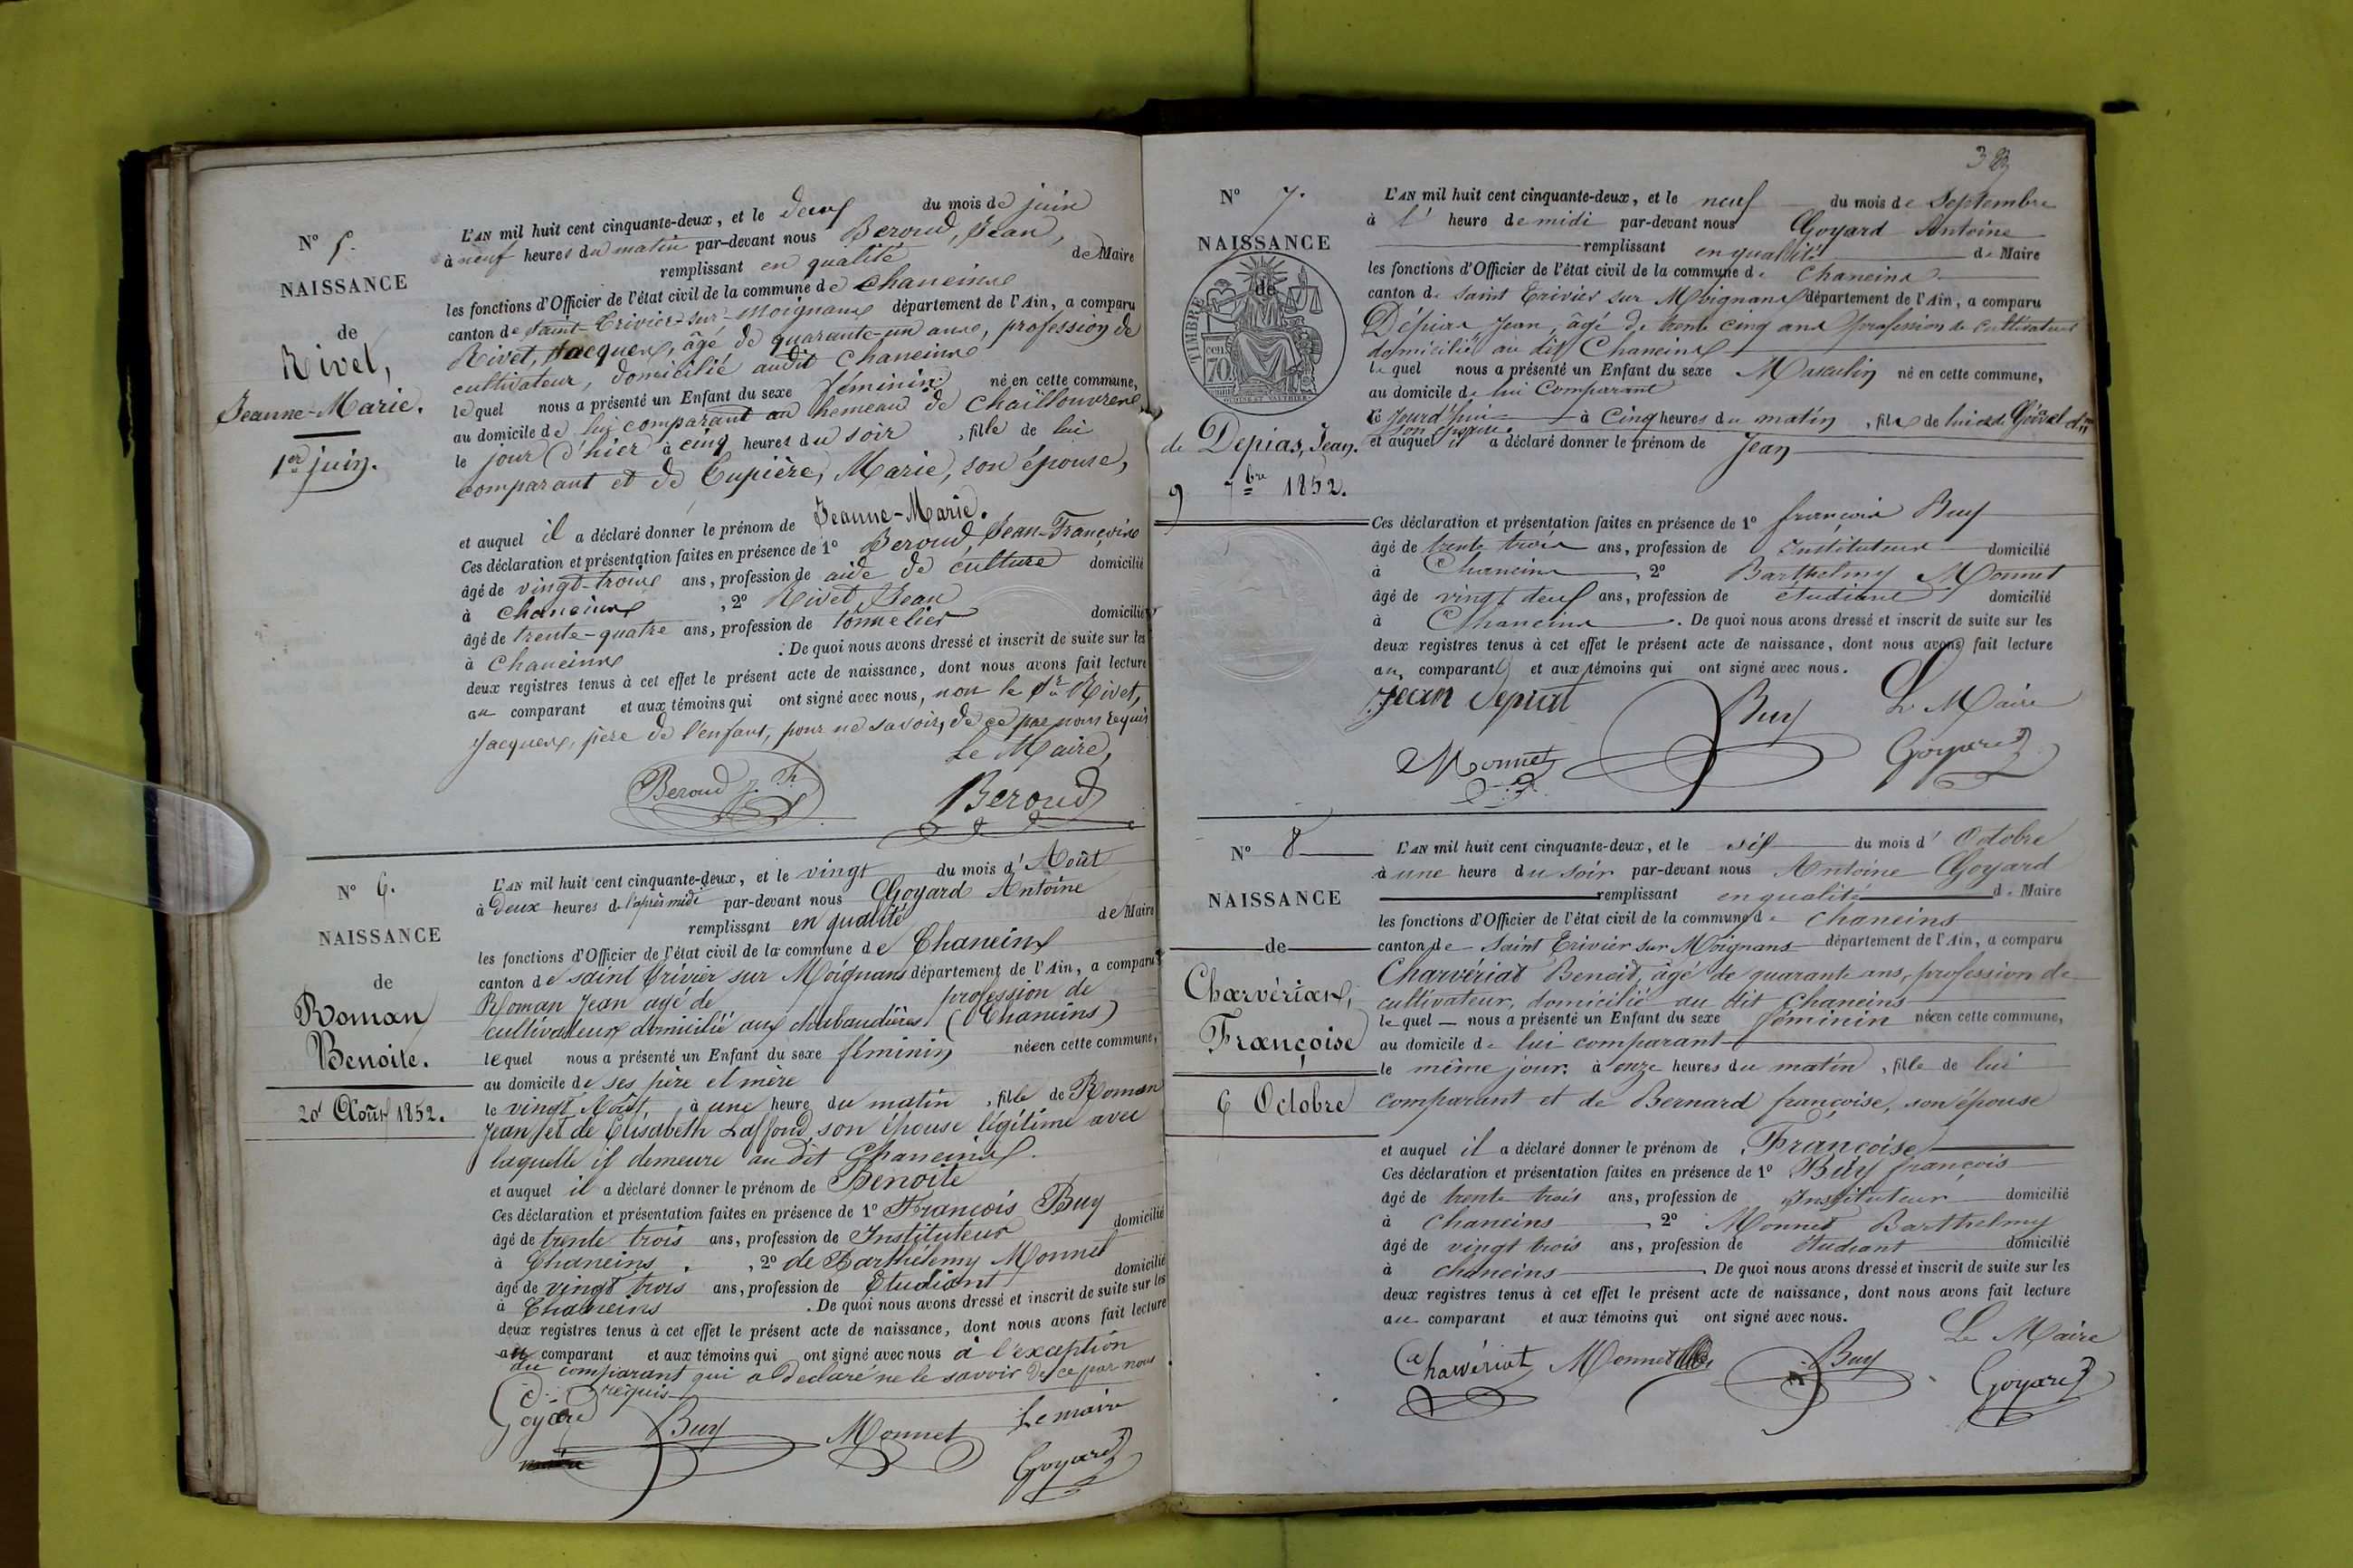 N° 5.
NAISSANCE
de
Rivet,
Jeanne-Marie.
1er juin.
L'AN mil huit cent cinquante-deux, et le deux du mois de juin
à neuf heures du matin par-devant nous Beroud, Jean,
remplissant en qualité de Maire
les fonctions d'Officier de l'état civil de la commune de Chaneins
canton de Saint-Trivier-sur-Moignans département de l'Ain, a comparu
Rivet, Jacques, âgé de quarante-un ans, profession de
cultivateur, domicilié audit Chaneins
lequel nous a présenté un Enfant du sexe féminin né en cette commune,
au domicile de lui comparant au hameau de
le jour d'hier à cinq heures du soir , fille de lui
comparant et de Tupière, Marie, son épouse,
et auquel il a déclaré donner le prénom de Jeanne-Marie.
Ces déclaration et présentation faites en présence de 1° Beroud, Jean-François
âgé de vingt-trois ans, profession de aide de culture domicilié
à Chaneins , 2° Rivet, Jean
âgé de trente-quatre ans, profession de tonnelier domicilié
à Chaneins . De quoi nous avons dressé et inscrit de suite sur les
deux registres tenus à cet effet le présent acte de naissance, dont nous avons fait lecture
au comparant et aux témoins qui ont signé avec nous, non le Sr Rivet,
Jacques, père de l'enfant, pour ne savoir, de ce par nous requis
Le Maire,
Beroud Beroud
N° 6.
NAISSANCE
de
Roman
Benoite.
20 Août 1852.
L'AN mil huit cent cinquante-deux, et le vingt du mois d'Août
à deux heures de l'après midi par-devant nous Goyard Antoine
remplissant en qualité de Maire
les fonctions d'Officier de l'état civil de la commune de Chaneins
canton de saint Trivier sur Moignans département de l'Ain, a comparu
Roman Jean agé de profession de
cultivateur domicilié aux chabaudières (Chaneins)
lequel nous a présenté un Enfant du sexe féminin née en cette commune,
au domicile de ses père et mère
le vingt Août, à une heure du matin , fille de Roman
Jean et de Elisabeth Laffond son épouse légitime avec
laquelle il demeure au dit Chaneins.
et auquel il a déclaré donner le prénom de Benoite
Ces déclaration et présentation faites en présence de 1° François Buy
âgé de trente trois ans, profession de Instituteur domicilié
à Chaneins , 2° de Barthélemy Monnet
âgé de vingt trois ans, profession de Etudiant domicilié
à Chaneins . De quoi nous avons dressé et inscrit de suite sur les
deux registres tenus à cet effet le présent acte de naissance, dont nous avons fait lecture
au comparant et aux témoins qui ont signé avec nous à l'exception
du comparant qui a déclaré ne le savoir de ce par nous
requis
Goyard Buy Monnet Le maire
Goyard
N° 7.
NAISSANCE
de
TIMBRE
cen. 70
de Depias, Jean.
9 7bre 1852.
L'AN mil huit cent cinquante-deux, et le neuf du mois de Septembre
à l' heure de midi par-devant nous Goyard Antoine
remplissant en qualité de Maire
les fonctions d'Officier de l'état civil de la commune de Chaneins
canton de Saint Trivier sur Moignans département de l'Ain, a comparu
Dépias Jean, âgé de trente cinq ans profession de cultivateur
domicilié au dit Chaneins
lequel nous a présenté un Enfant du sexe Masculin né en cette commune,
au domicile de lui Comparant
ce Jourd'hui à Cinq heures du matin , fils de lui et de
et auquel il a déclaré donner le prénom de Jean
Ces déclaration et présentation faites en présence de 1° françois Buy
âgé de trente trois ans, profession de Instituteur domicilié
à Chaneins , 2° Barthelmy Monnet
âgé de vingt deux ans, profession de étudiant domicilié
à Chaneins . De quoi nous avons dressé et inscrit de suite sur les
deux registres tenus à cet effet le présent acte de naissance, dont nous avons fait lecture
au comparant et aux témoins qui ont signé avec nous.
Jean Depiat Buy Le Maire
Monnet Goyard
N° 8
NAISSANCE
de
Charvériat,
Françoise
6 Octobre
L'AN mil huit cent cinquante-deux, et le six du mois d'Octobre
à une heure du soir par-devant nous Antoine Goyard
remplissant en qualité de Maire
les fonctions d'Officier de l'état civil de la commune de Chaneins
canton de Saint Trivier sur Moignans département de l'Ain, a comparu
Charvériat Benoit, âgé de quarante ans, profession de
cultivateur, domicilié au dit Chaneins
lequel nous a présenté un Enfant du sexe féminin née en cette commune,
au domicile de lui comparant
le même jour, à onze heures du matin , fille de lui
comparant et de Bernard françoise, son épouse
et auquel il a déclaré donner le prénom de Françoise
Ces déclaration et présentation faites en présence de 1° Buy françois
âgé de trente trois ans, profession de Instituteur domicilié
à Chaneins 2° Monnet Barthelmy
âgé de vingt trois ans, profession de étudiant domicilié
à Chaneins . De quoi nous avons dressé et inscrit de suite sur les
deux registres tenus à cet effet le présent acte de naissance, dont nous avons fait lecture
au comparant et aux témoins qui ont signé avec nous.
Le Maire
Charvériat Monnet Buy Goyard